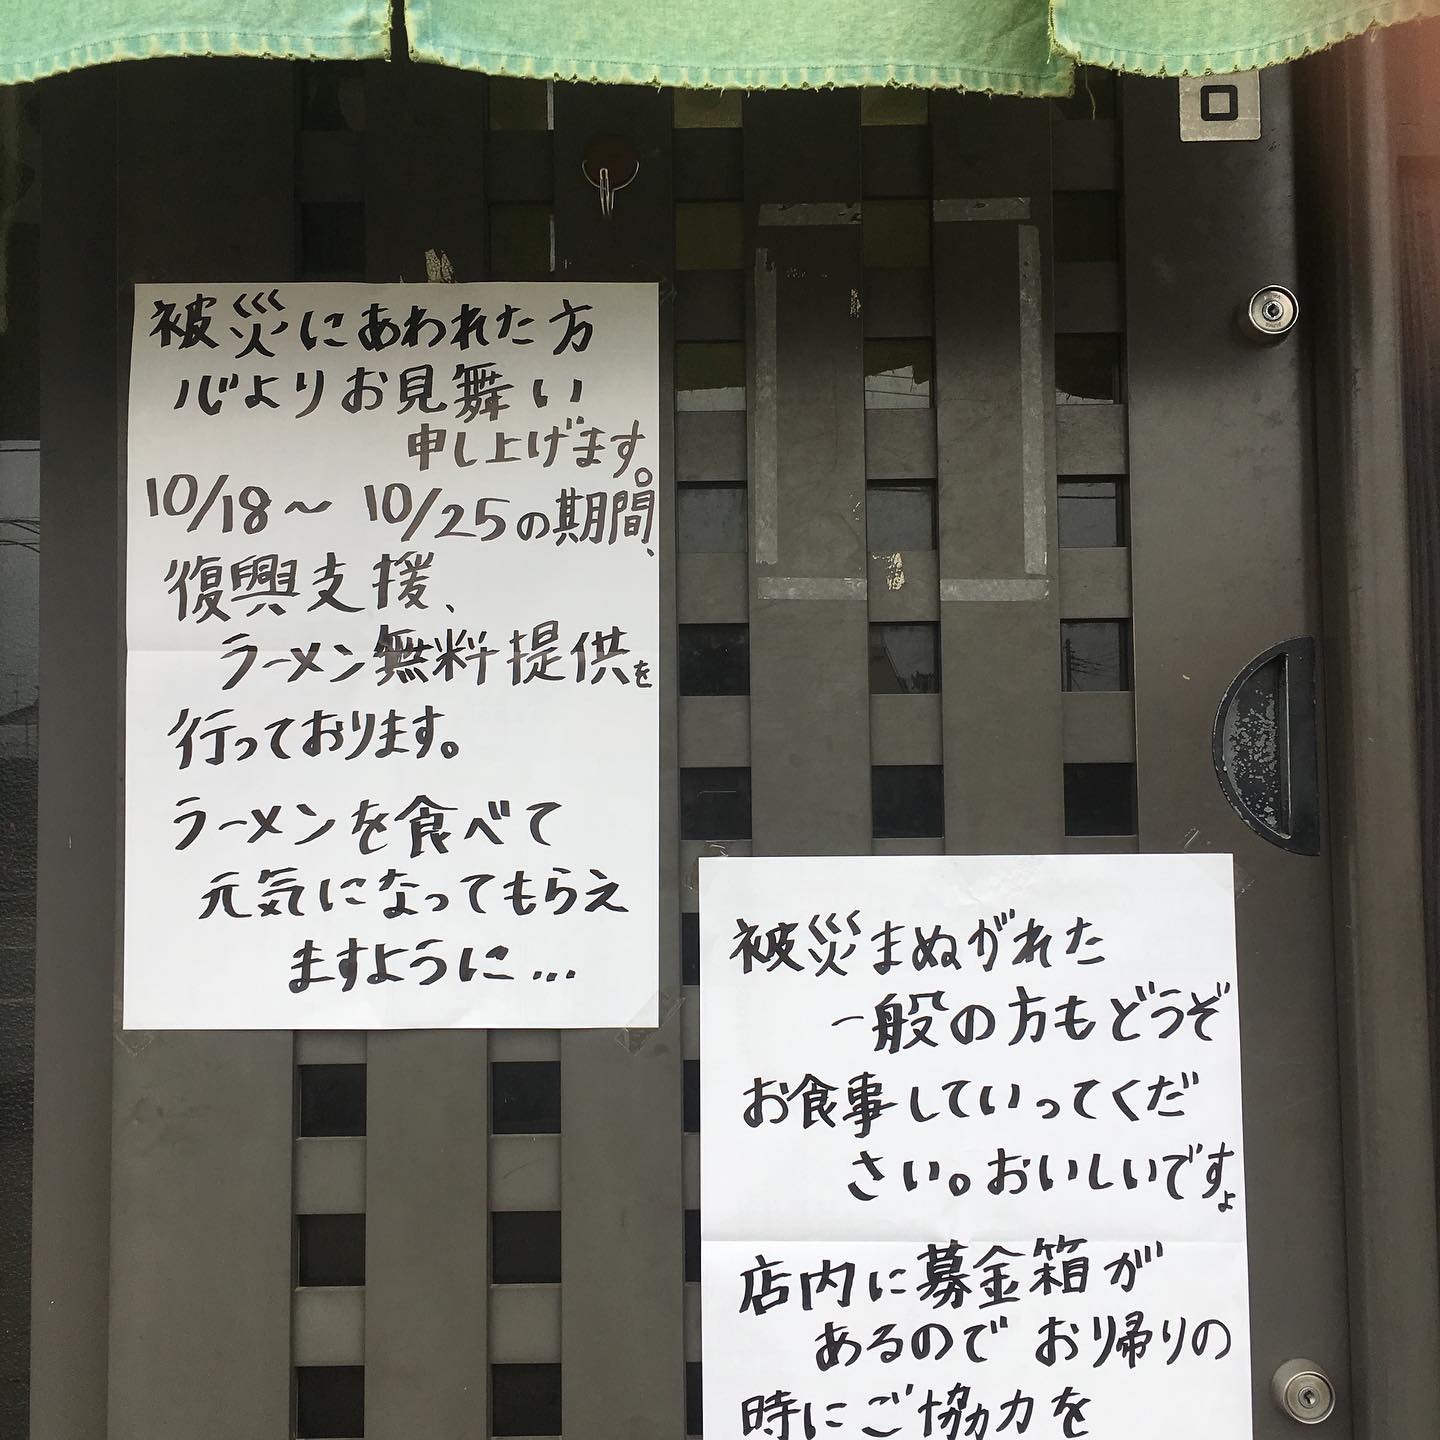 被災にあわれた方
心よりお見舞い
申し上げます。
10/18〜10/25の期間、
復興支援、
ラーメン無料提供を
行っております。
ラーメンを食べて
元気になってもらえ
ますように…
被災まぬがれた
一般の方もどうぞ
お食事していってくだ
さい。おいしいですよ
店内に募金箱が
あるので お帰りの
時にご協力を